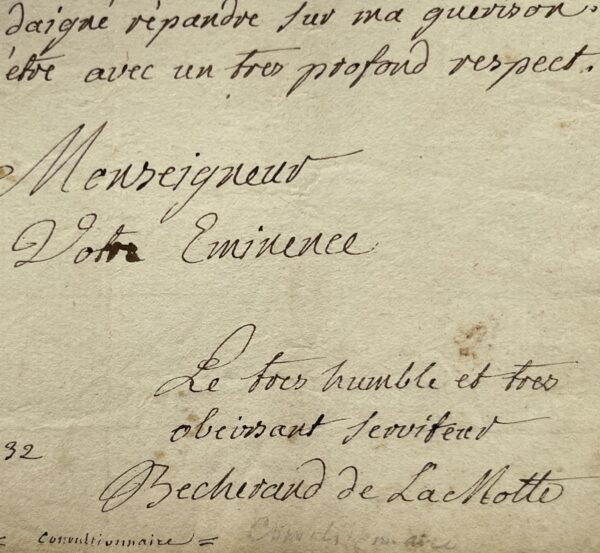 daigné répandre sur ma guerison.
être avec un tres profond respect.
Monseigneur
Votre Eminence
Le tres humble et tres
obeissant serviteur
32
Becherand de LaMotte
= Convultionnaire =